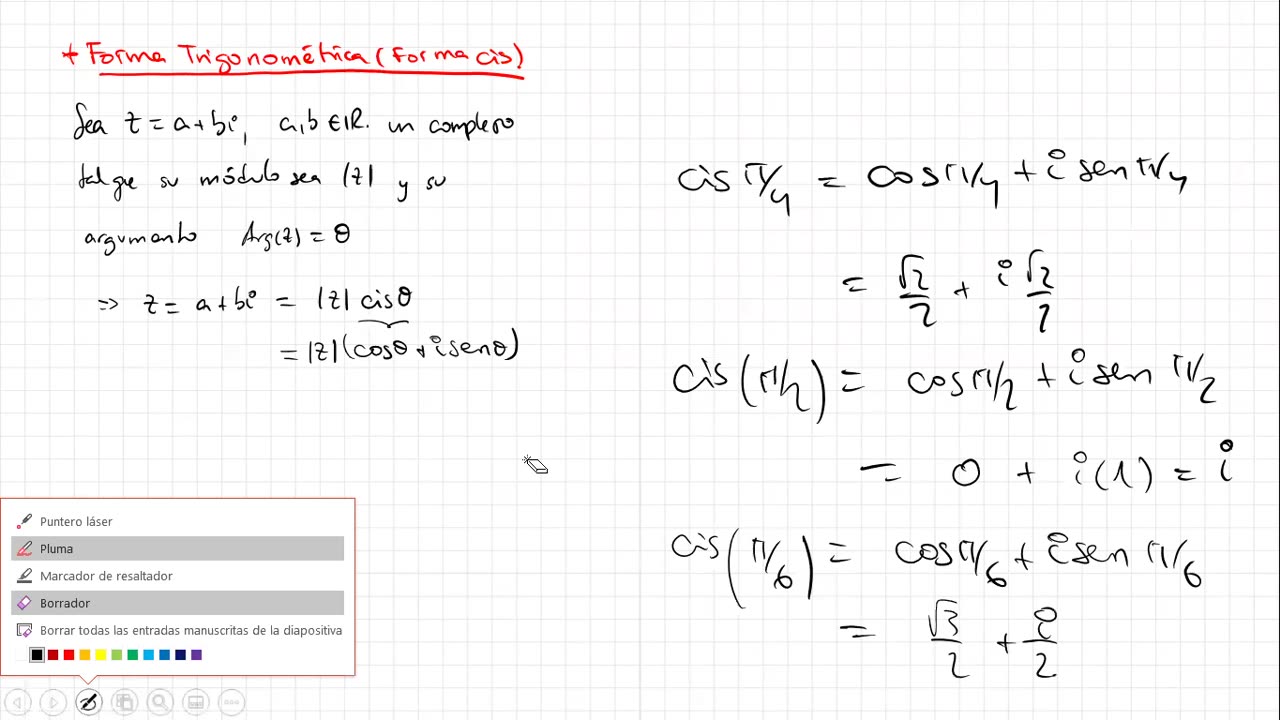 + Forma Trigonométrica (Forma cis)
Sea z = a + bi, a,b ∈ IR. un complejo
tal que su módulo sea |z| y su
argumento Arg(z) = θ
=> z = a + bi = |z| cisθ
= |z|(cosθ + i senθ)
cis π/4 = cos π/4 + i sen π/4
= √2/2 + i √2/2
cis(π/2) = cos π/2 + i sen π/2
= 0 + i(1) = i
cis(π/6) = cos π/6 + i sen π/6
= √3/2 + i/2
Puntero láser
Pluma
Marcador de resaltador
Borrador
Borrar todas las entradas manuscritas de la diapositiva